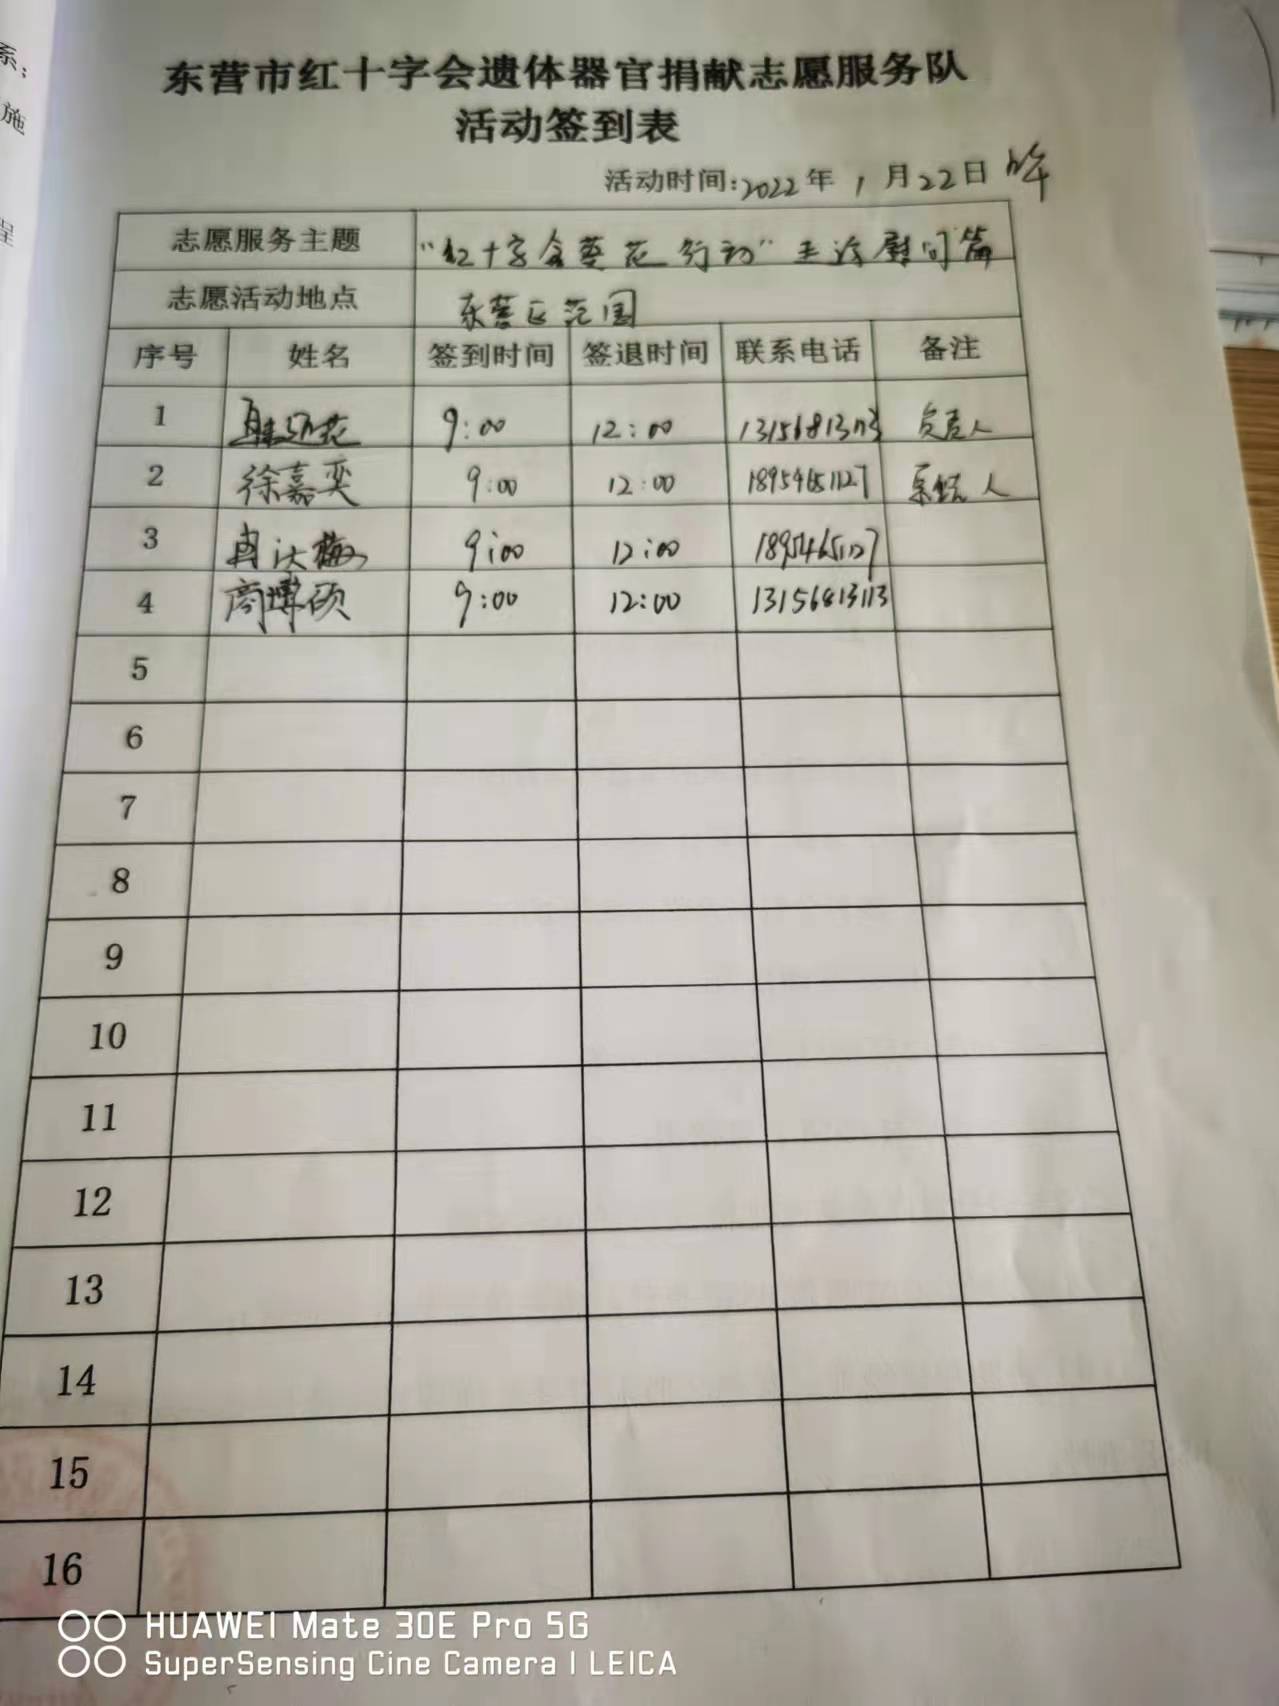 系；
施
程
东营市红十字会遗体器官捐献志愿服务队
活动签到表
活动时间:2022年 1 月22日
志愿服务主题 “红十字会葵花行动”走访慰问篇
志愿活动地点 东营区范围
序号 姓名 签到时间 签退时间 联系电话 备注
1 9:00 12:00 负责人
2 徐嘉奕 9:00 12:00 18954651127 人
3 9:00 12:00 18954651127
4 商博硕 9:00 12:00 13156813113
5
6
7
8
9
10
11
12
13
14
15
16
HUAWEI Mate 30E Pro 5G
SuperSensing Cine Camera | LEICA